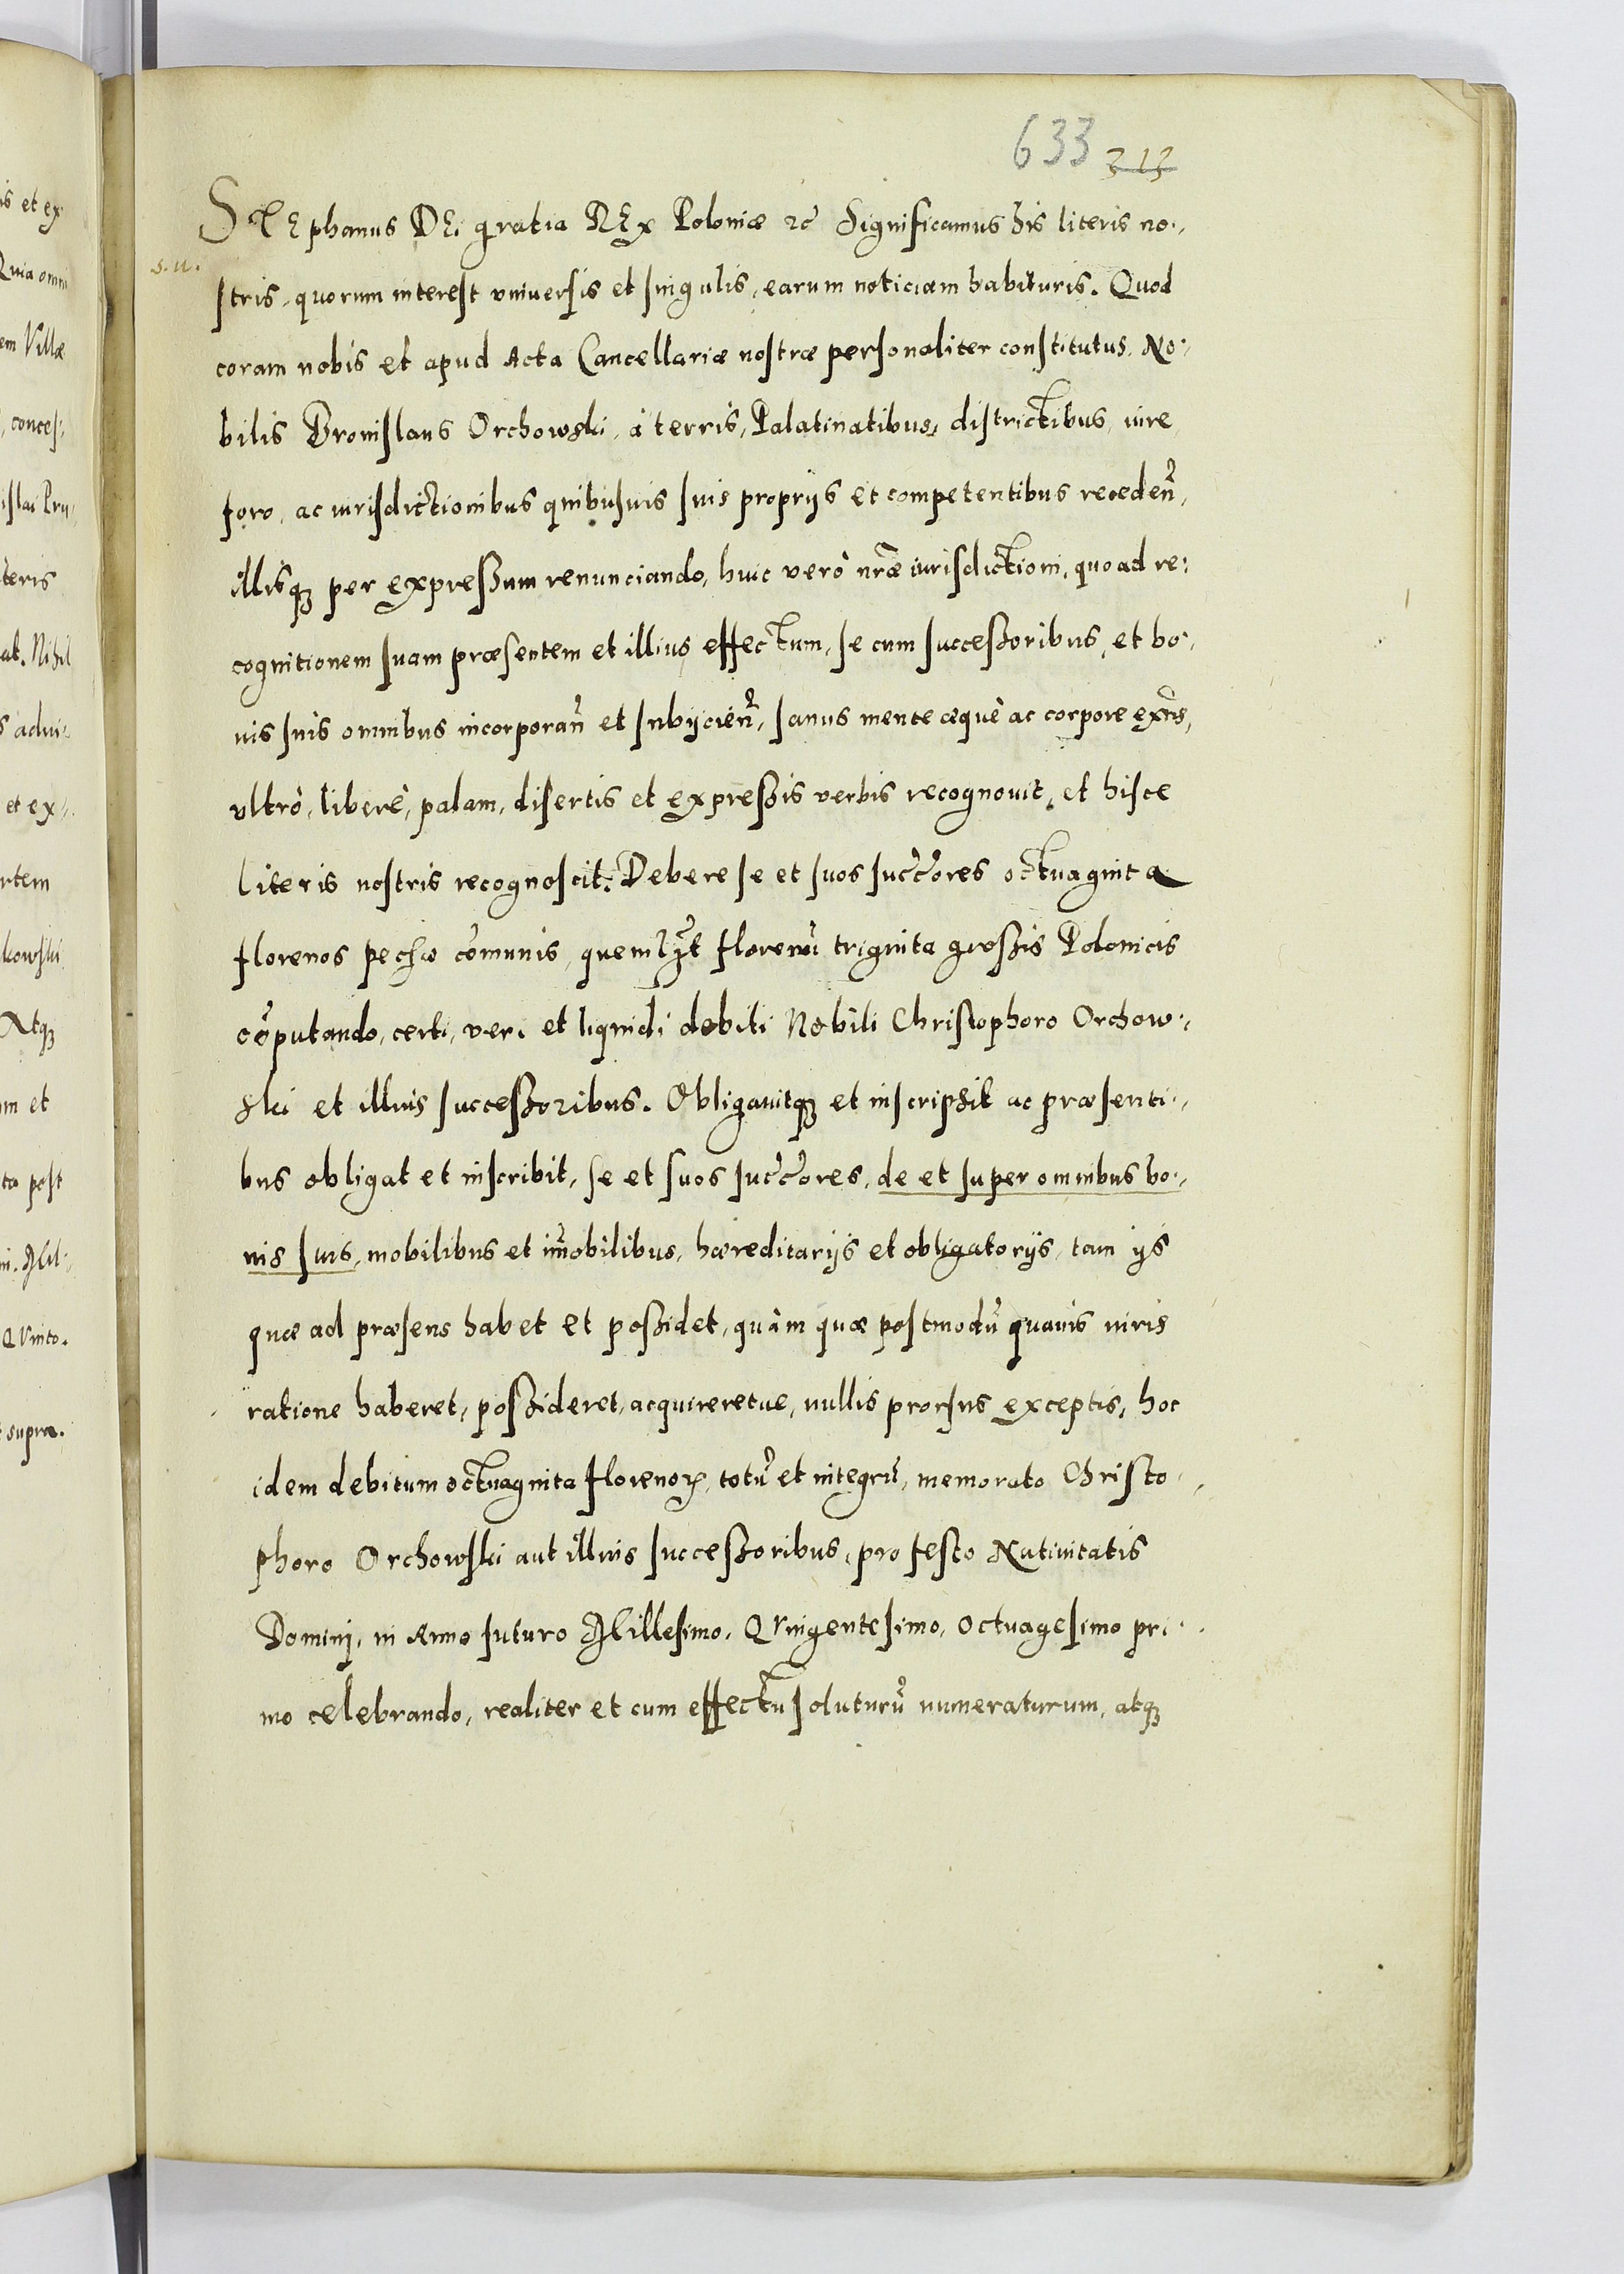 633 313
STEphanus DEi gratia REx Poloniæ ꝛc̃ Significamus his literis no⸗
s. u.
stris, quorum interest vniuersis et singulis, earum noticiam habituris. Quod
coram nobis et apud Acta Cancellariæ nostræ personaliter constitutus. No⸗
bilis Bronislaus Orchowski, à terris, Palatinatibus, districtibus, iure
foro, ac iurisdictionibus quibusuis suis proprijs et competentibus recedeñ,
illisqꝫ per expreßum renunciando, huic verò nr̃æ iurisdictioni, quoad re⸗
cognitionem suam præsentem et illius effectum, se cum succeßoribus, et bo⸗
nis suis omnibus incorporañ et subijcieñ, sanus mente æquè ac corpore exñs,
vltrò, liberè, palam, disertis et expreßis verbis recognouit, et hisce
literis nostris recognoscit. Debere se et suos succ̃c̃ores octuaginta
florenos pecuniæ com̃unis, quemlꝫt florenũ triginta großis Polonicis
cõputando, certi, veri et liquidi debiti Nobili Christophoro Orchow⸗
ski et illius succeßoribus. Obligauitqꝫ et inscripsit ac præsenti⸗
bus obligat et inscribit, se et suos succ̃c̃ores, de et super omnibus bo⸗
nis suis, mobilibus et im̃obilibus, hæreditarijs et obligatorijs, tam ijs
quæ ad præsens habet et poßidet, quàm quæ postmodũ quauis iuris
ratione haberet, poßideret, acquireretue, nullis prorsus exceptis, hoc
idem debitum octuaginta florenoꝝ, totũ et integrũ, memorato Christo⸗
phoro Orchowski aut illius succeßoribus, pro festo Natiuitatis
Dominj, in Anno futuro Millesimo, Quingentesimo, Octuagesimo pri⸗
mo celebrando, realiter et cum effectu soluturũ numeraturum, atqꝫ